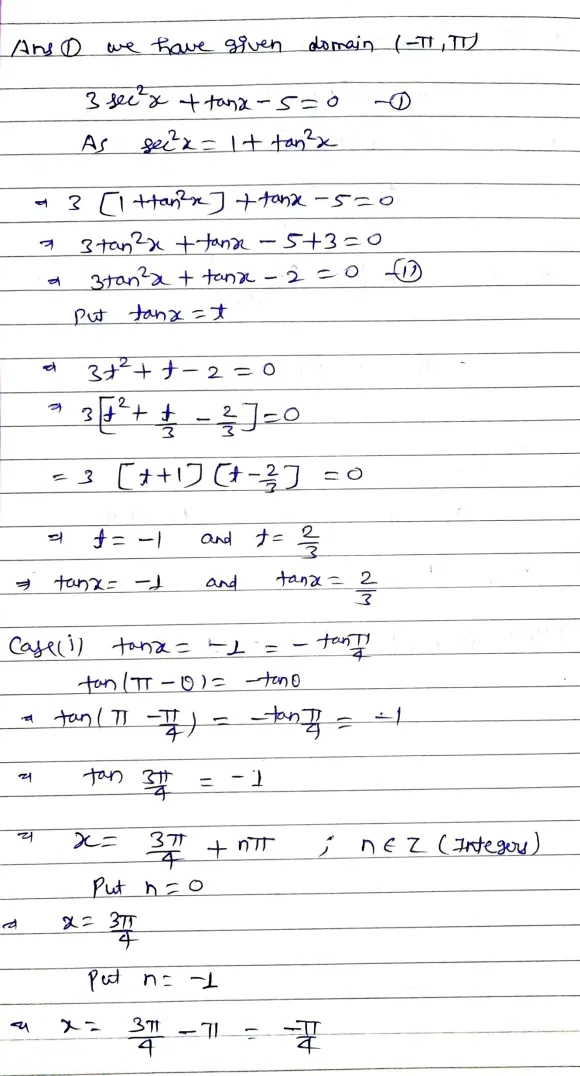 Ans ① we have given domain (-π, π)
3 sec²x + tanx - 5 = 0 -①
As sec²x = 1 + tan²x
⇒ 3 [1 + tan²x] + tanx - 5 = 0
⇒ 3tan²x + tanx - 5 + 3 = 0
⇒ 3tan²x + tanx - 2 = 0 -⑪
Put tanx = t
⇒ 3t² + t - 2 = 0
⇒ 3[t² + t/3 - 2/3] = 0
= 3 [t+1] [t - 2/3] = 0
⇒ t = -1 and t = 2/3
⇒ tanx = -1 and tanx = 2/3
Case(i) tanx = -1 = - tan π/4
tan(π - θ) = -tanθ
⇒ tan(π - π/4) = -tan π/4 = -1
⇒ tan 3π/4 = -1
⇒ x = 3π/4 + nπ ; n ∈ Z (Integers)
Put n = 0
⇒ x = 3π/4
Put n = -1
⇒ x = 3π/4 - π = -π/4